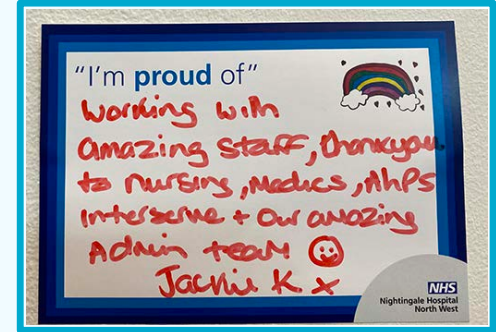 "I'm proud of"
Working with
amazing staff, thankyou
to nursing, Medics, AhPs
Interserve + Our amazing
Admin team
Jackie K x
NHS
Nightingale Hospital
North West